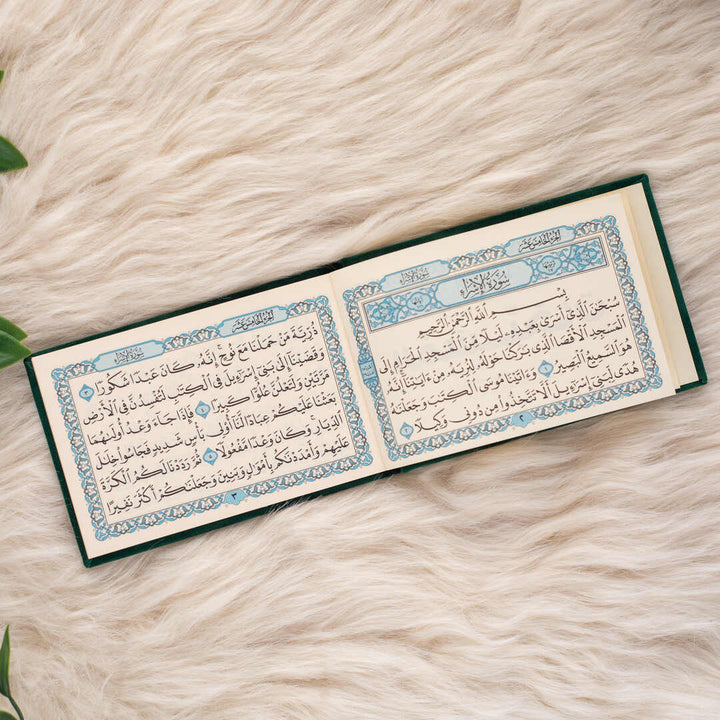 الجزء الخامس عشر
سورة الإسراء
سُورَةُ الإِسْرَاءِ
بِسْمِ اللَّهِ الرَّحْمَنِ الرَّحِيمِ
سُبْحَٰنَ الَّذِىٓ أَسْرَىٰ بِعَبْدِهِۦ لَيْلًا مِّنَ الْمَسْجِدِ الْحَرَامِ إِلَى
الْمَسْجِدِ الْأَقْصَا الَّذِى بَٰرَكْنَا حَوْلَهُۥ لِنُرِيَهُۥ مِنْ ءَايَٰتِنَآ إِنَّهُۥ
هُوَ السَّمِيعُ الْبَصِيرُ ١ وَءَاتَيْنَا مُوسَى الْكِتَٰبَ وَجَعَلْنَٰهُ
هُدًى لِّبَنِىٓ إِسْرَٰٓءِيلَ أَلَّا تَتَّخِذُوا۟ مِن دُونِى وَكِيلًا ٢
٢
الجزء الخامس عشر
سورة الإسراء
ذُرِّيَّةَ مَنْ حَمَلْنَا مَعَ نُوحٍ إِنَّهُۥ كَانَ عَبْدًا شَكُورًا ٣
وَقَضَيْنَآ إِلَىٰ بَنِىٓ إِسْرَٰٓءِيلَ فِى الْكِتَٰبِ لَتُفْسِدُنَّ فِى الْأَرْضِ
مَرَّتَيْنِ وَلَتَعْلُنَّ عُلُوًّا كَبِيرًا ٤ فَإِذَا جَآءَ وَعْدُ أُولَىٰهُمَا
بَعَثْنَا عَلَيْكُمْ عِبَادًا لَّنَآ أُو۟لِى بَأْسٍ شَدِيدٍ فَجَاسُوا۟ خِلَٰلَ
الدِّيَارِ وَكَانَ وَعْدًا مَّفْعُولًا ٥ ثُمَّ رَدَدْنَا لَكُمُ الْكَرَّةَ
عَلَيْهِمْ وَأَمْدَدْنَٰكُم بِأَمْوَٰلٍ وَبَنِينَ وَجَعَلْنَٰكُمْ أَكْثَرَ نَفِيرًا
٣